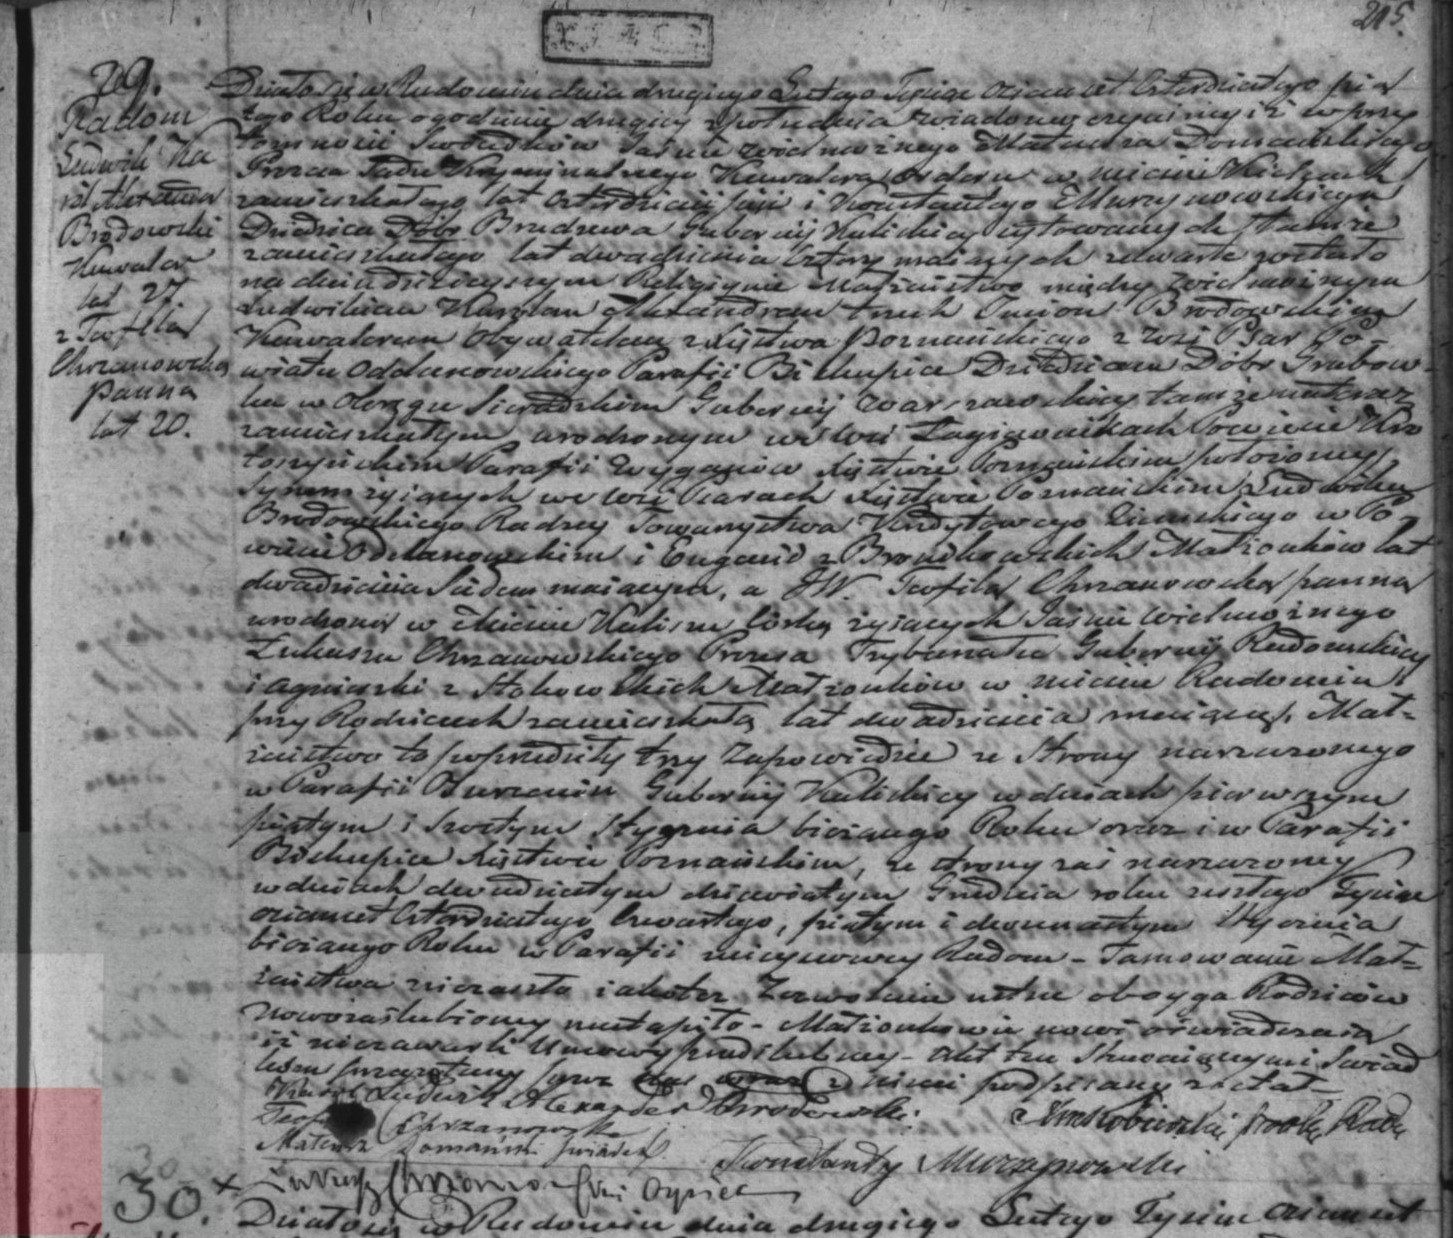 215.
29.
Radom
Ludwik Ka
rol Alexander
Brodowski
Kawaler
lat 27.
z Teofilą
Chrzanowską
Panną
lat 20.
Działo się w Radomiu dnia drugiego Lutego Tysiąc ośmset czterdziestego pią
tego Roku o godzinie drugiey z południa wiadomo czyniemy iż w przy
tomności Świadków Jaśnie Wielmożnego Mateusza
Prezesa Sądu Kryminalnego Kawalera Orderu w mieście Kielcach
zamieszkałego lat czterdzieści i Konstantego Murzynowskiego
Dziedzica Dóbr Brudzewa Gubernii Kaliskiey tamże
zamieszkałego lat dwadzieścia cztery maiących zawarte zostało
na dniu dzisieyszym Religiyne Małżeństwo między Wielmożnym
Ludwikiem Karolem Alexandrem trzech Imion Brodowskim
Kawalerem Obywatelem z Xięstwa Poznańskiego z Wsi Psar Po-
wiatu Odolanowskiego Parafii Biskupice Dziedzicem Dóbr Grabow-
ka w Okręgu Sieradzkim Gubernii Warszawskiey tamże teraz
zamieszkałym, urodzonym we Wsi Łagiewnikach Powiecie Kro
toszyńskim Parafii Wyganów Xięstwie Poznańskim położoney
Synem żyiących we Wsi Psarach Xięstwie Poznańskim Ludwika
Brodowskiego Radzcy Towarzystwa Kredytowego Ziemskiego w Po
wiecie Odolanowskim i Eugenii z Bronikowskich Małżonków lat
dwadzieścia siedem maiącym, a JW. Teofilą Chrzanowską panną
urodzoną w Mieście Kaliszu córką żyiących Jaśnie Wielmożnego
Łukasza Chrzanowskiego Prezesa Trybunału Gubernii Radomskiey
i Agnieszki z Stokowskich Małżonków w mieście Radomiu
przy Rodzicach zamieszkałą lat dwadzieścia maiącą. Mał-
żeństwo to poprzedziły trzy Zapowiedzie ze Strony narzeczonego
w Parafii Gubernii Kaliskiey w dniach pierwszym
piątym i szóstym Stycznia bieżącego Roku oraz i w Parafii
Biskupice Xięstwie Poznańskim, ze strony zaś narzeczoney
w dniach dwudziestym dziewiątym Grudnia roku zeszłego Tysiąc
ośmset czterdziestego czwartego, piątym i dwunastym Stycznia
bieżącego Roku w Parafii mieyscowey Radom - Tamowanie Mał-
żeństwa niezaszło iakoteż Zezwolenie ustne oboyga Rodziców
Nowozaślubioney nastąpiło - Małżonkowie nowi oświadczaią
iż niezawarli Umowy przedślubney - Akt ten Stawaiącym i Świad
kom przeczytany przez nas wraz z niemi podpisany został
Karol Ludwik Alexander Brodowski.
Chrzanowska
Mateusz świadek
Konstanty Murzynowski
Łukasz Chrzanowski Oyciec
30.
Działo się w Radomiu dnia drugiego Lutego Tysiąc ośmset